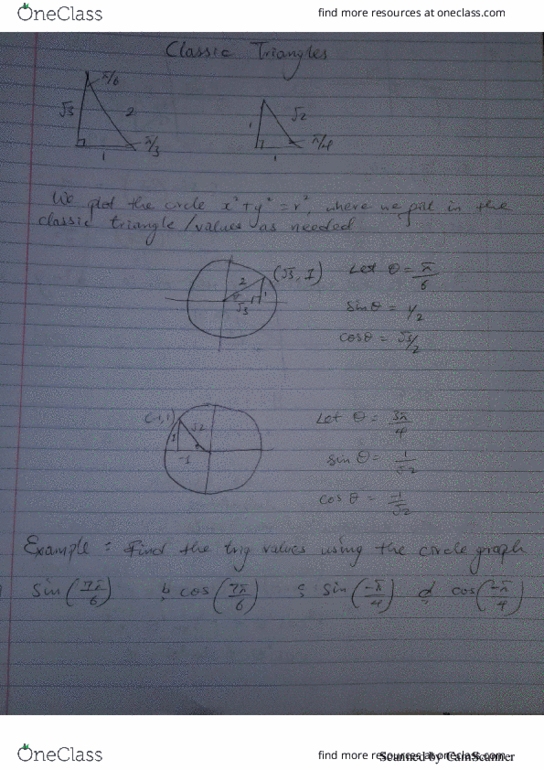 OneClass
find more resources at oneclass.com
Classic Triangles
π/6
√3
2
π/3
1
√2
1
π/4
1
We plot the circle x² + y² = r², where we put in the
classic triangle/values as needed
(√3, 1)
2
1
√3
Let θ = π/6
sinθ = 1/2
cosθ = √3/2
(-1,1)
√2
1
-1
Let θ = 3π/4
sin θ = 1/√2
cos θ = -1/√2
Example: Find the trig values using the circle graph
sin(7π/6) b, cos(7π/6) c, sin(-π/4) d, cos(-π/4)
OneClass
find more resources at oneclass.com
Scanned by CamScanner